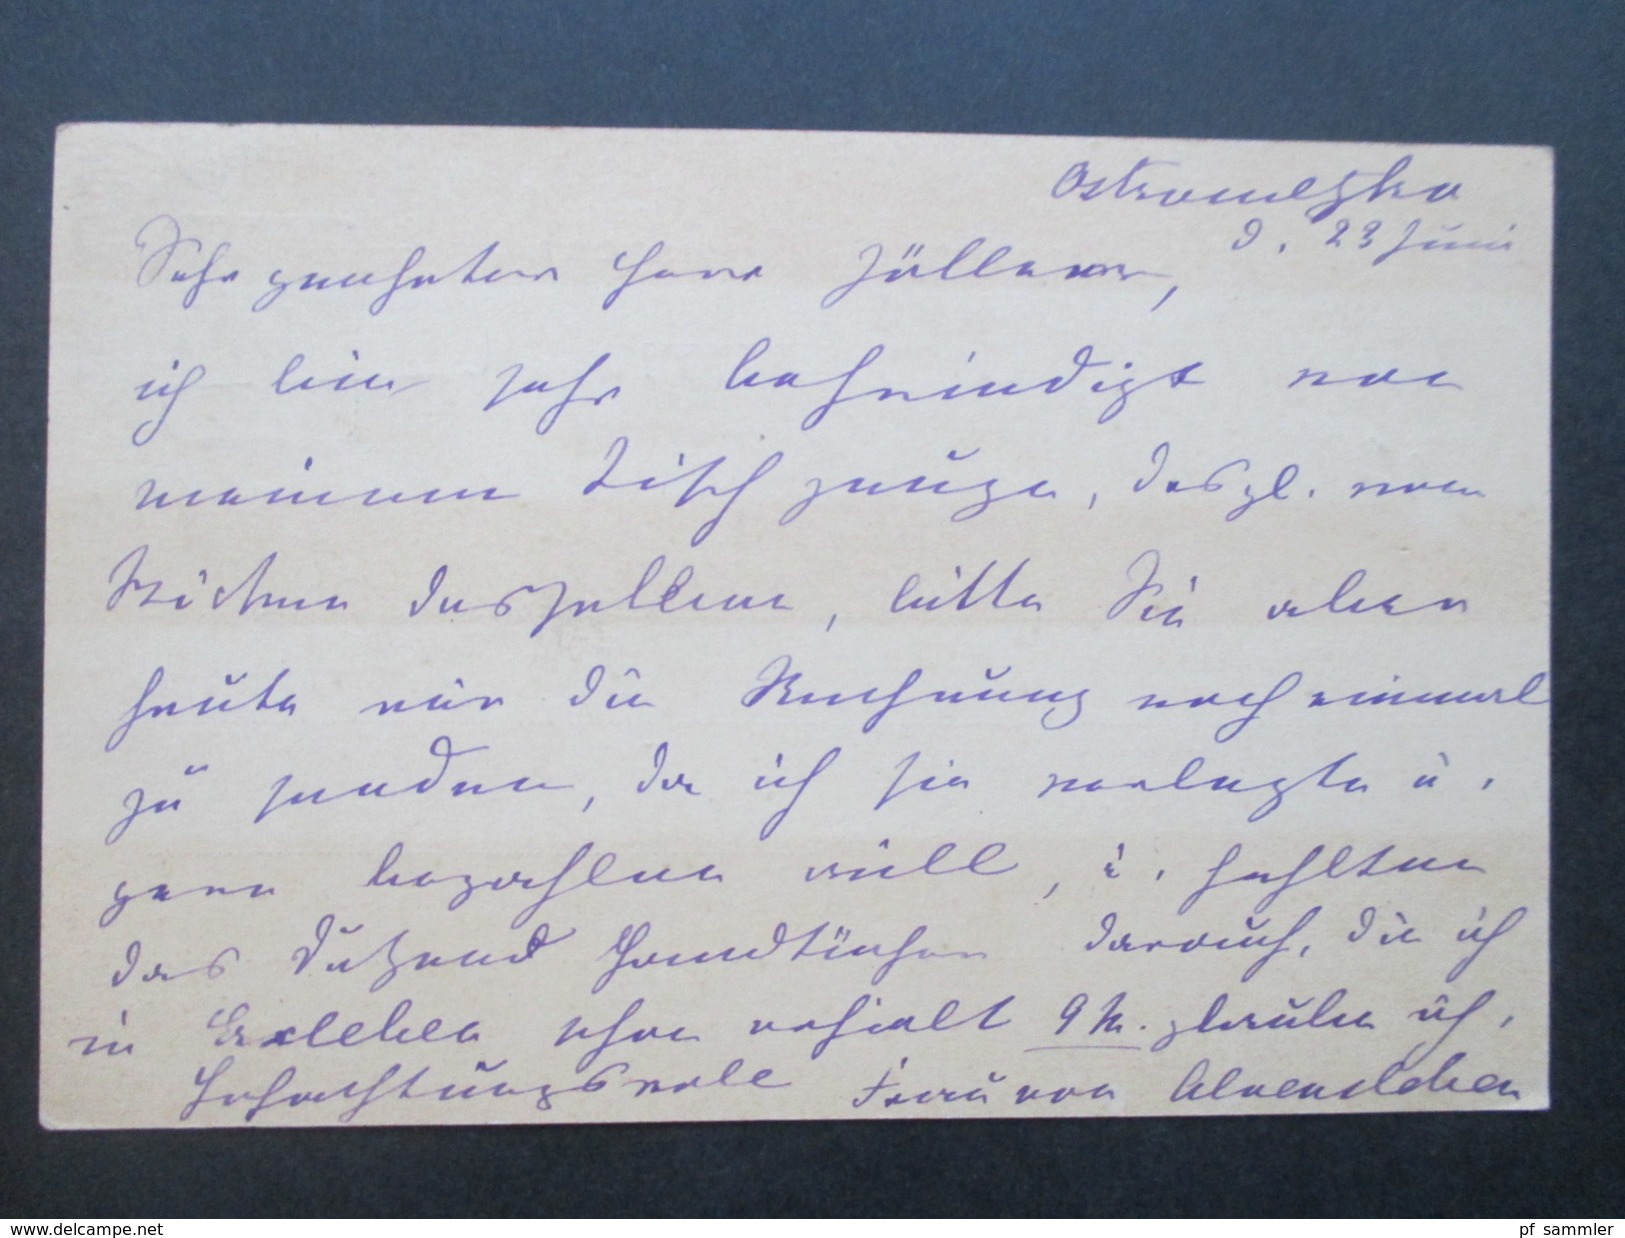 Ostrometzko
d. 23 Juni
Sehr geehrter Herr Zöllner,
ich bin sehr befriedigt von
meinem Tischzeuge, desgl. vom
Sticken desselben, bitte Sie aber
heute nur die Rechnung noch einmal
zu senden, da ich sie verlegte u.
gern bezahlen will, u. fehlten
das Dutzend Handtücher darauf, die ich
in Erxleben schon erhielt 9 M. glaube ich.
Hochachtungsvoll Frau von Alvensleben
www.delcampe.net
pf_sammler